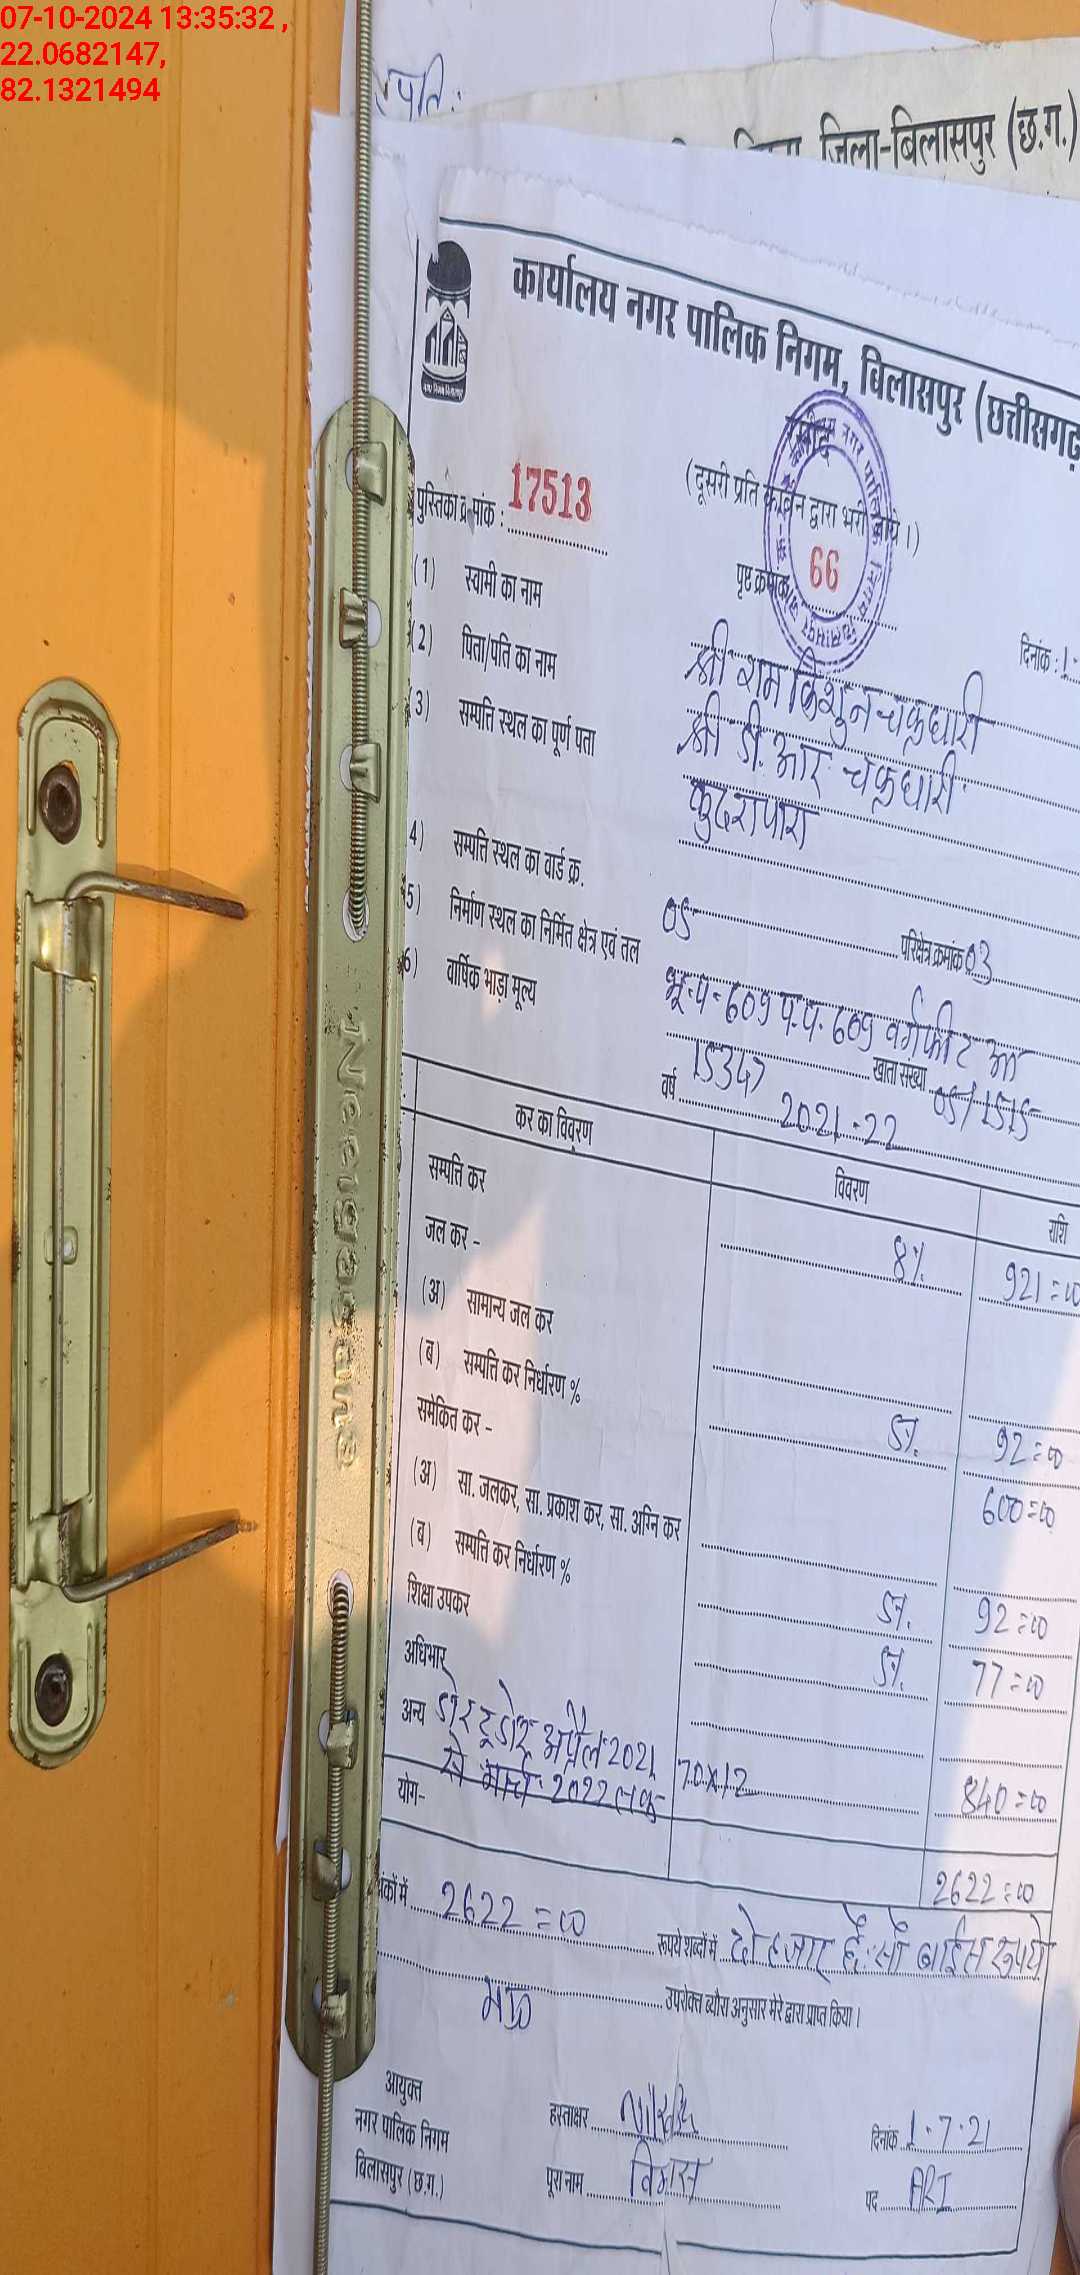 07-10-2024 13:35:32 ,
22.0682147,
82.1321494
जिला-बिलासपुर (छ.ग.)
कार्यालय नगर पालिक निगम, बिलासपुर (छत्तीसगढ़
(दूसरी प्रति कार्बन द्वारा भरी जाये।)
पुस्तिका क्रमांक : 17513
पृष्ठ क्रमांक 66
दिनांक : 1
(1) स्वामी का नाम श्री रामकिशुन चक्रधारी
(2) पिता/पति का नाम श्री डी. आर. चक्रधारी
(3) सम्पत्ति स्थल का पूर्ण पता कुदरापारा
4) सम्पत्ति स्थल का वार्ड क्र. 05 परिक्षेत्र क्रमांक 03
5) निर्माण स्थल का निर्मित क्षेत्र एवं तल भू.प.-609 प.प. 609 वर्गफीट
6) वार्षिक भाड़ा मूल्य 15347 खाता संख्या 05/1515
वर्ष 2021-22
कर का विवरण विवरण राशि
सम्पत्ति कर 8% 921=00
जल कर -
(अ) सामान्य जल कर
(ब) सम्पत्ति कर निर्धारण % 92=00
समेकित कर - 600=00
(अ) सा. जलकर, सा. प्रकाश कर, सा. अग्नि कर
(ब) सम्पत्ति कर निर्धारण % 92=00
शिक्षा उपकर 77=00
अधिभार
अन्य डोर टू डोर अप्रैल 2021 70x12 840=00
से मार्च 2022 तक
योग- 2622=00
अंकों में 2622=00 रूपये शब्दों में दो हजार छै: सौ बाईस रूपये
उपरोक्त ब्यौरा अनुसार मेरे द्वारा प्राप्त किया।
आयुक्त
नगर पालिक निगम
बिलासपुर (छ.ग.)
हस्ताक्षर
दिनांक 1.7.21
पूरा नाम
पद ARI
Neelgagan